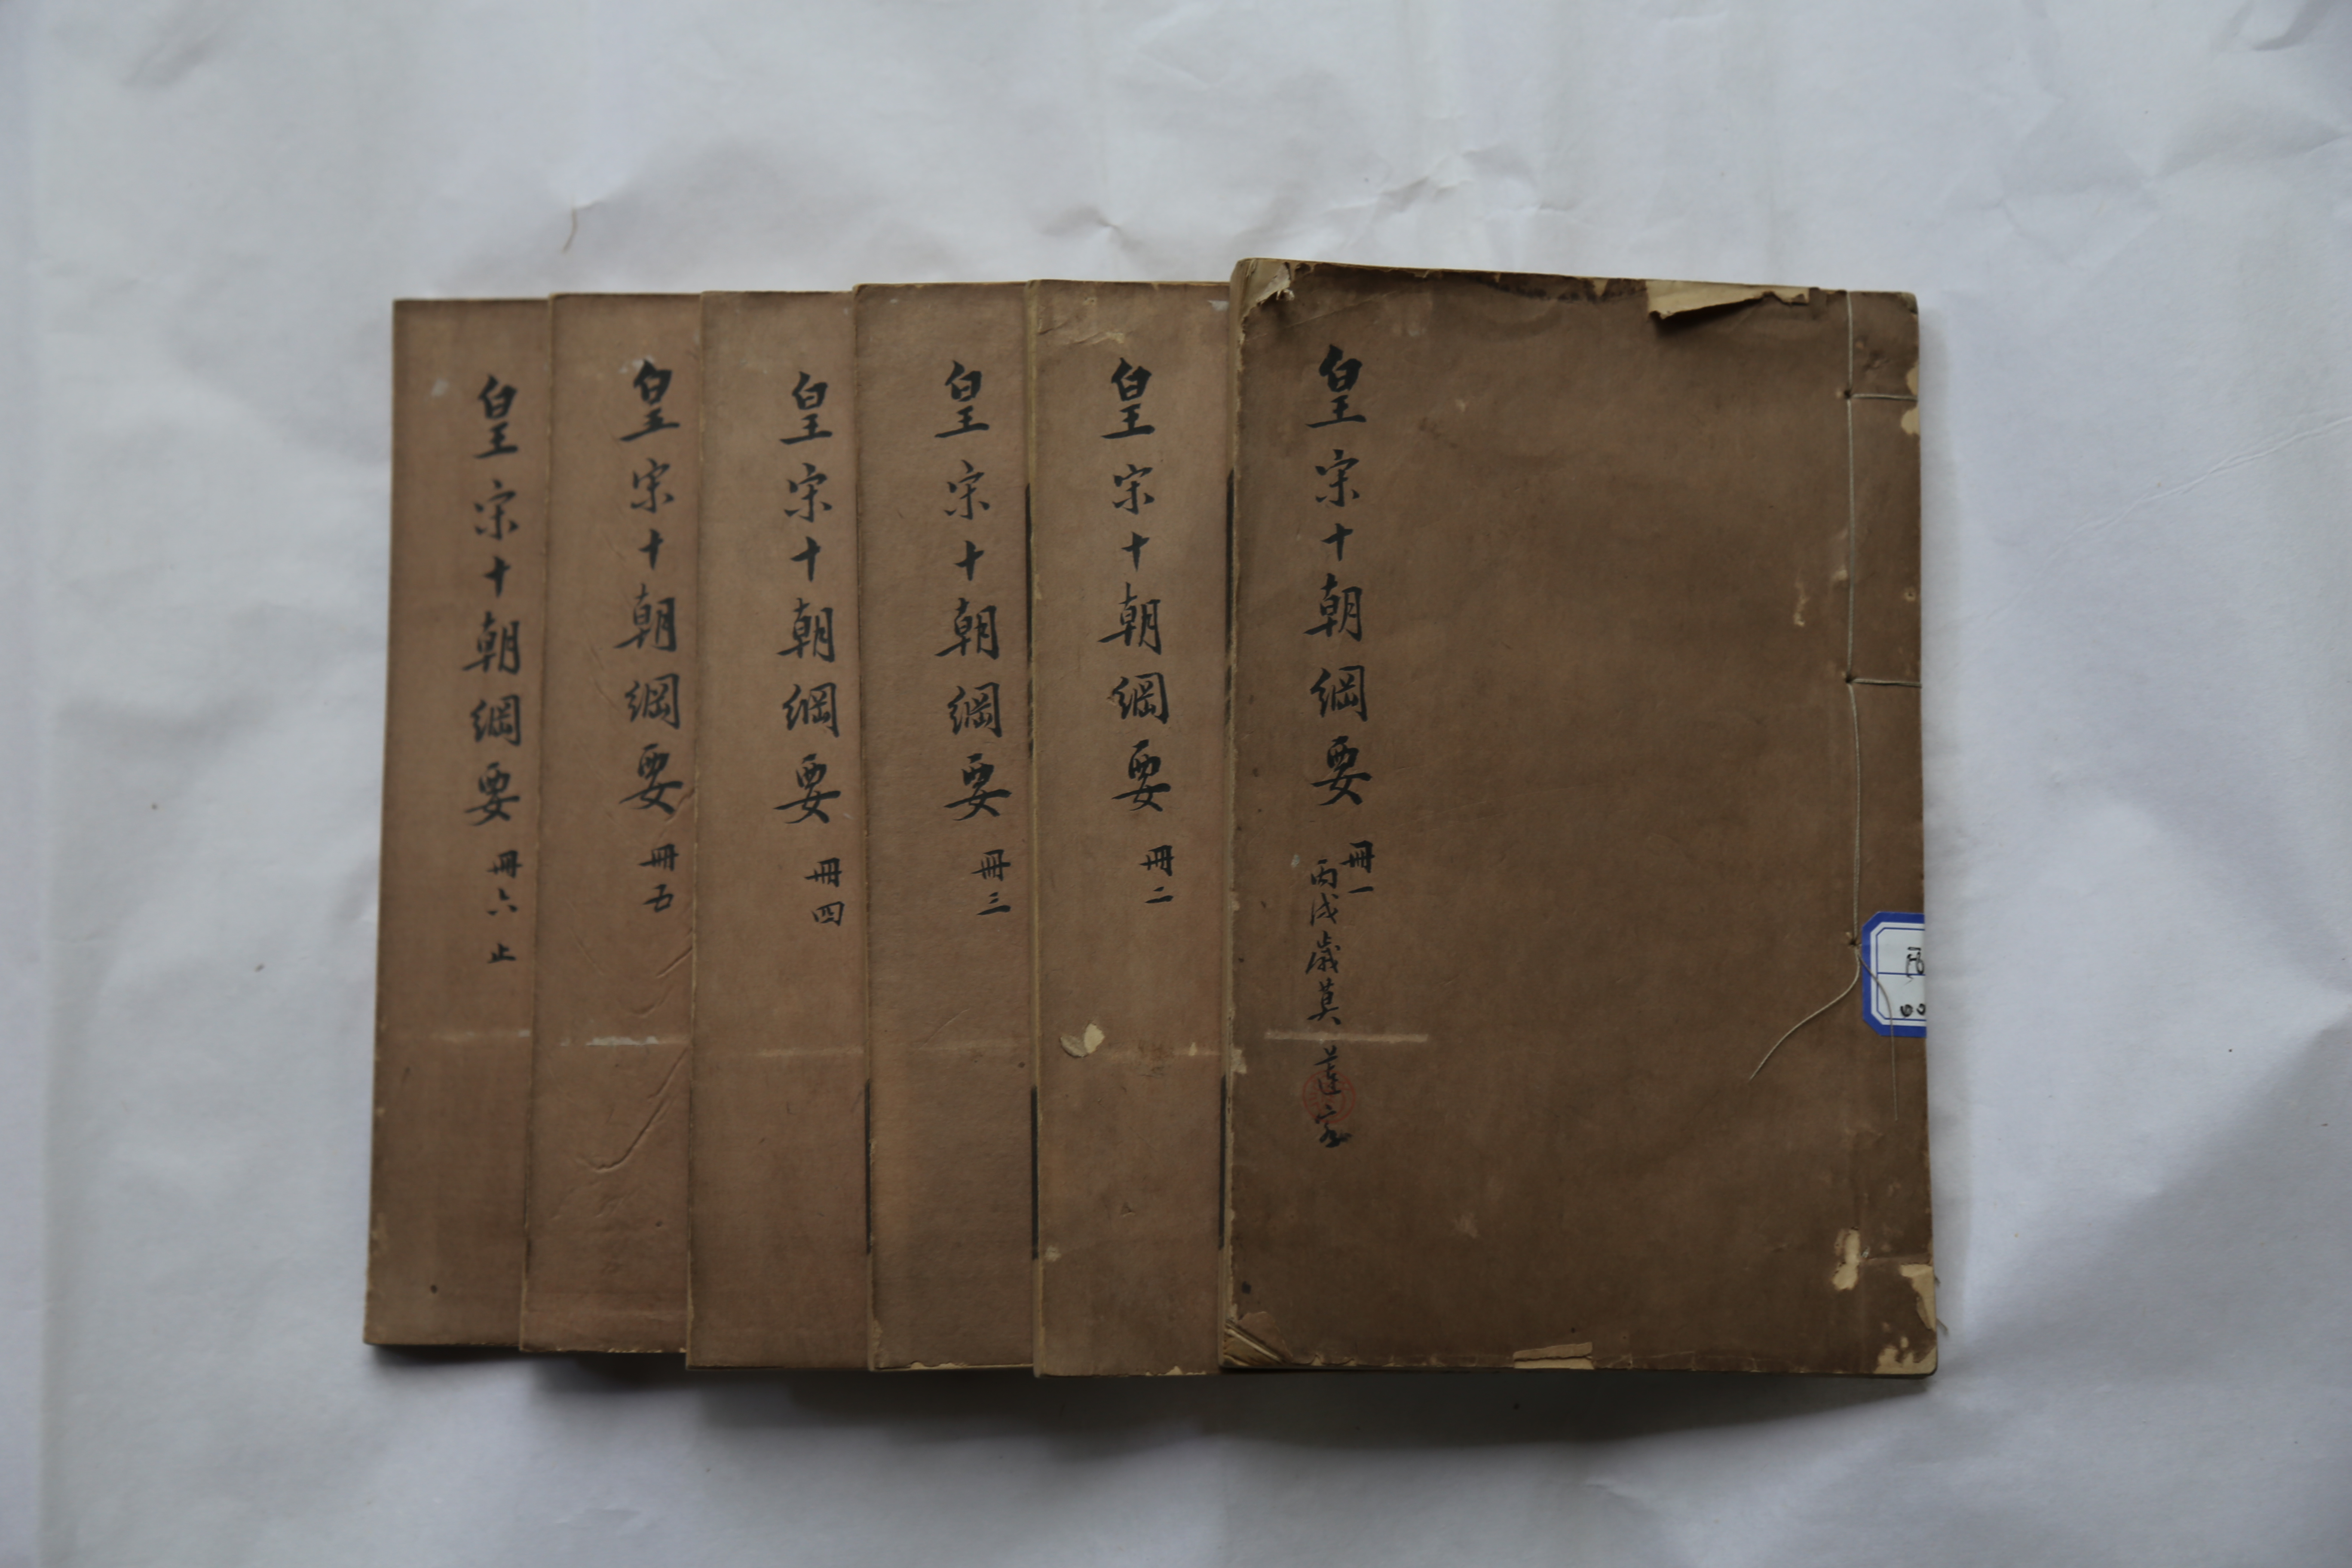 皇宋十朝綱要 冊一
丙戌歲莫 蓮客
皇宋十朝綱要 冊二
皇宋十朝綱要 冊三
皇宋十朝綱要 冊四
皇宋十朝綱要 冊五
皇宋十朝綱要 冊六 止